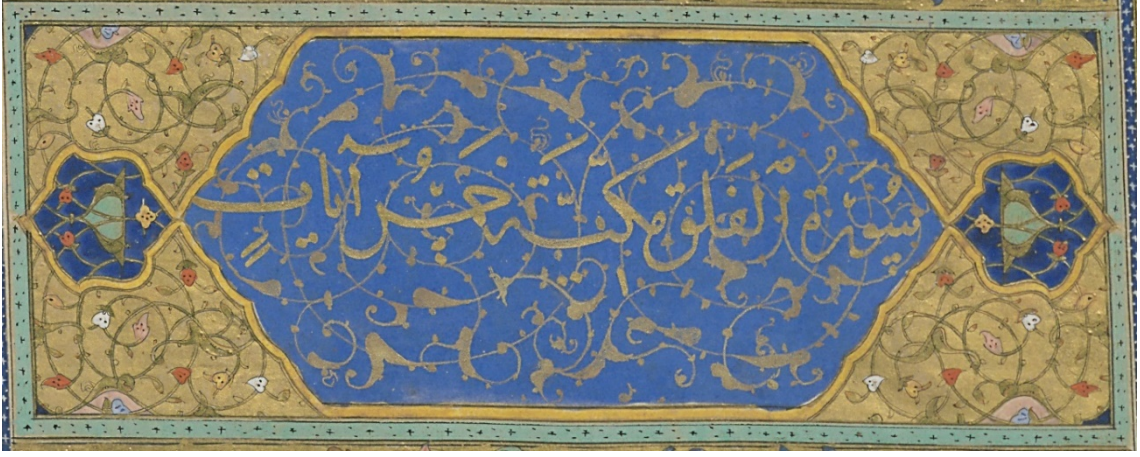 سُورَةُ الْفَلَقِ مَكِّيَّة خَمْسُ آيَاتٍ